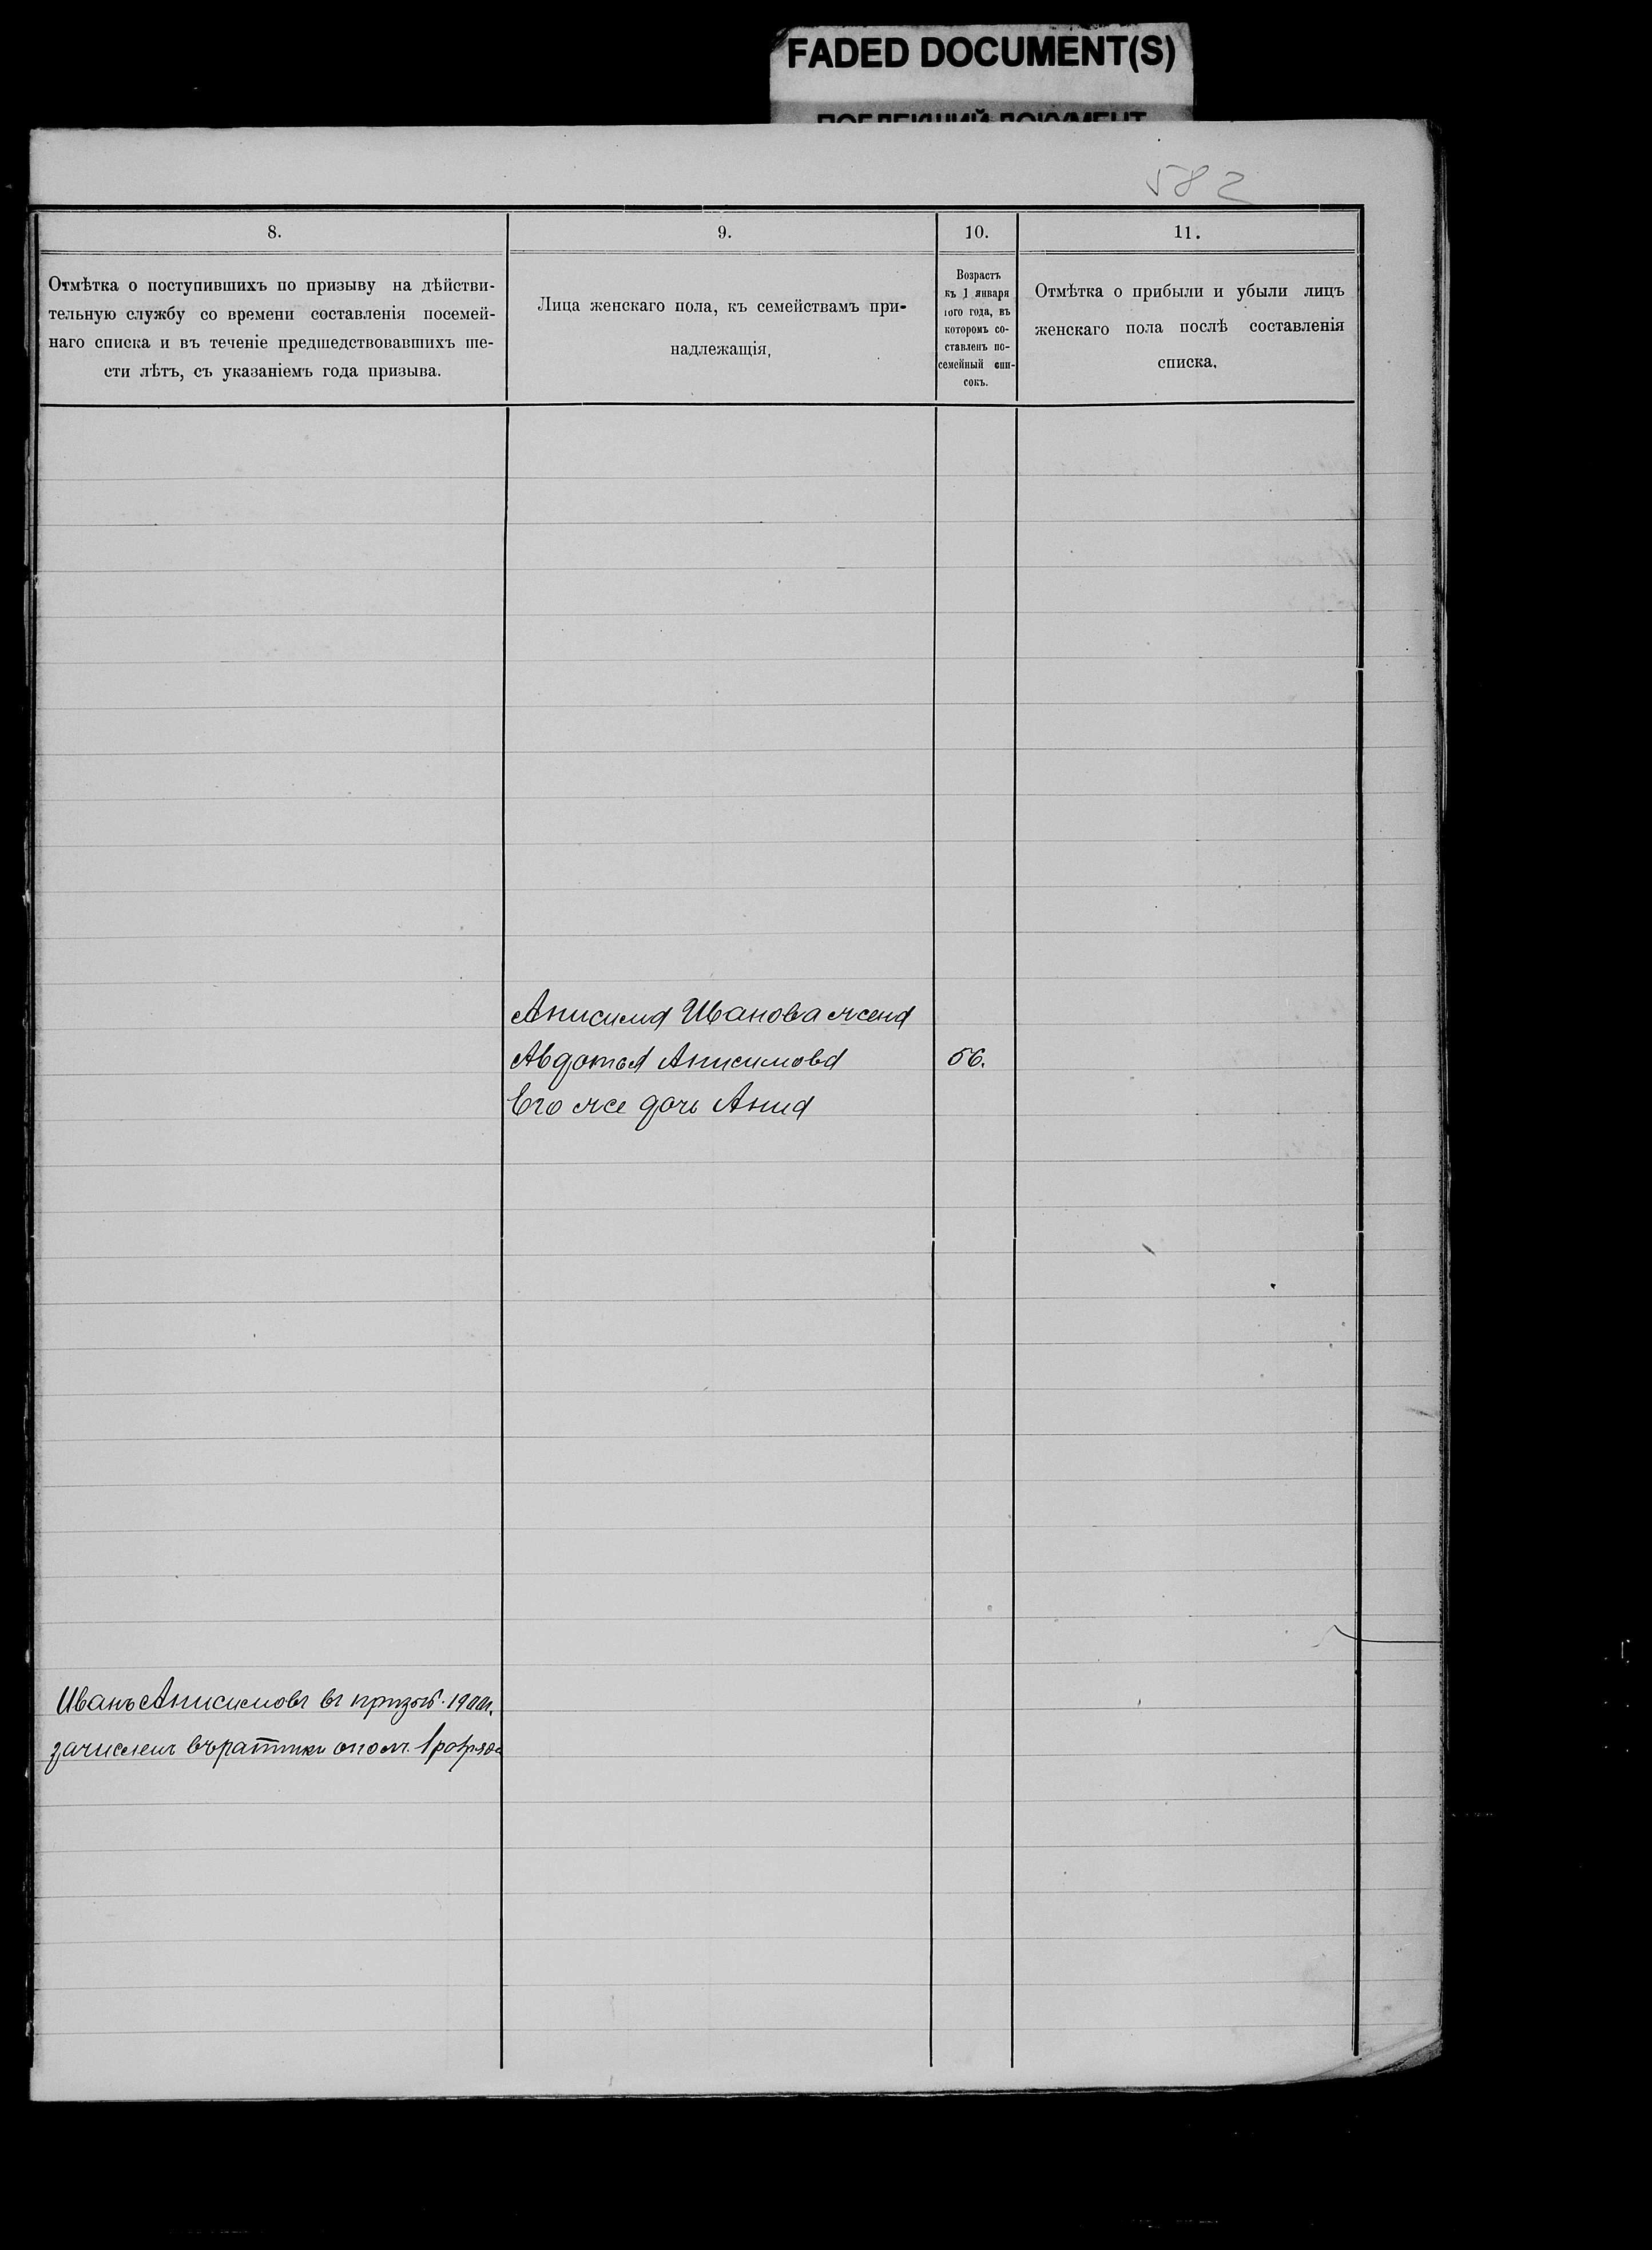 FADED DOCUMENT(S)
ПОБЛЕКШИЙ ДОКУМЕНТ
582
8.
9.
10.
11.
Отмѣтка о поступившихъ по призыву на дѣйстви-
тельную службу со времени составленія посемей-
наго списка и въ теченіе предшедствовавшихъ ше-
сти лѣтъ, съ указаніемъ года призыва.
Лица женскаго пола, къ семействамъ при-
надлежащія,
Возрастъ
къ 1 января
того года, въ
которомъ со-
ставленъ по-
семейный спи-
сокъ.
Отмѣтка о прибыли и убыли лицъ
женскаго пола послѣ составленія
списка.
Анисима Иванова жена
Авдотья Анисимова 56.
Его же дочь Анна
Иванъ Анисимовъ въ призывъ
зачисленъ въ ратники опол. 1 разряда